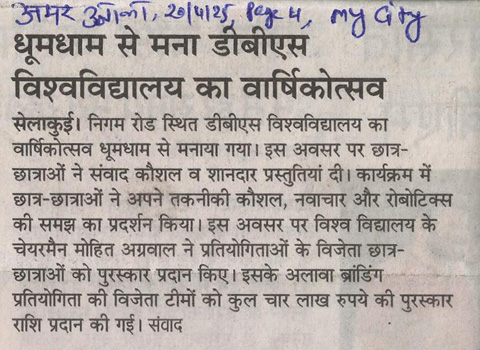 अमर उजाला, 20/4/25, Page 4, My City
धूमधाम से मना डीबीएस
विश्वविद्यालय का वार्षिकोत्सव
सेलाकुई। निगम रोड स्थित डीबीएस विश्वविद्यालय का
वार्षिकोत्सव धूमधाम से मनाया गया। इस अवसर पर छात्र-
छात्राओं ने संवाद कौशल व शानदार प्रस्तुतियां दी। कार्यक्रम में
छात्र-छात्राओं ने अपने तकनीकी कौशल, नवाचार और रोबोटिक्स
की समझ का प्रदर्शन किया। इस अवसर पर विश्व विद्यालय के
चेयरमैन मोहित अग्रवाल ने प्रतियोगिताओं के विजेता छात्र-
छात्राओं को पुरस्कार प्रदान किए। इसके अलावा ब्रांडिंग
प्रतियोगिता की विजेता टीमों को कुल चार लाख रुपये की पुरस्कार
राशि प्रदान की गई। संवाद